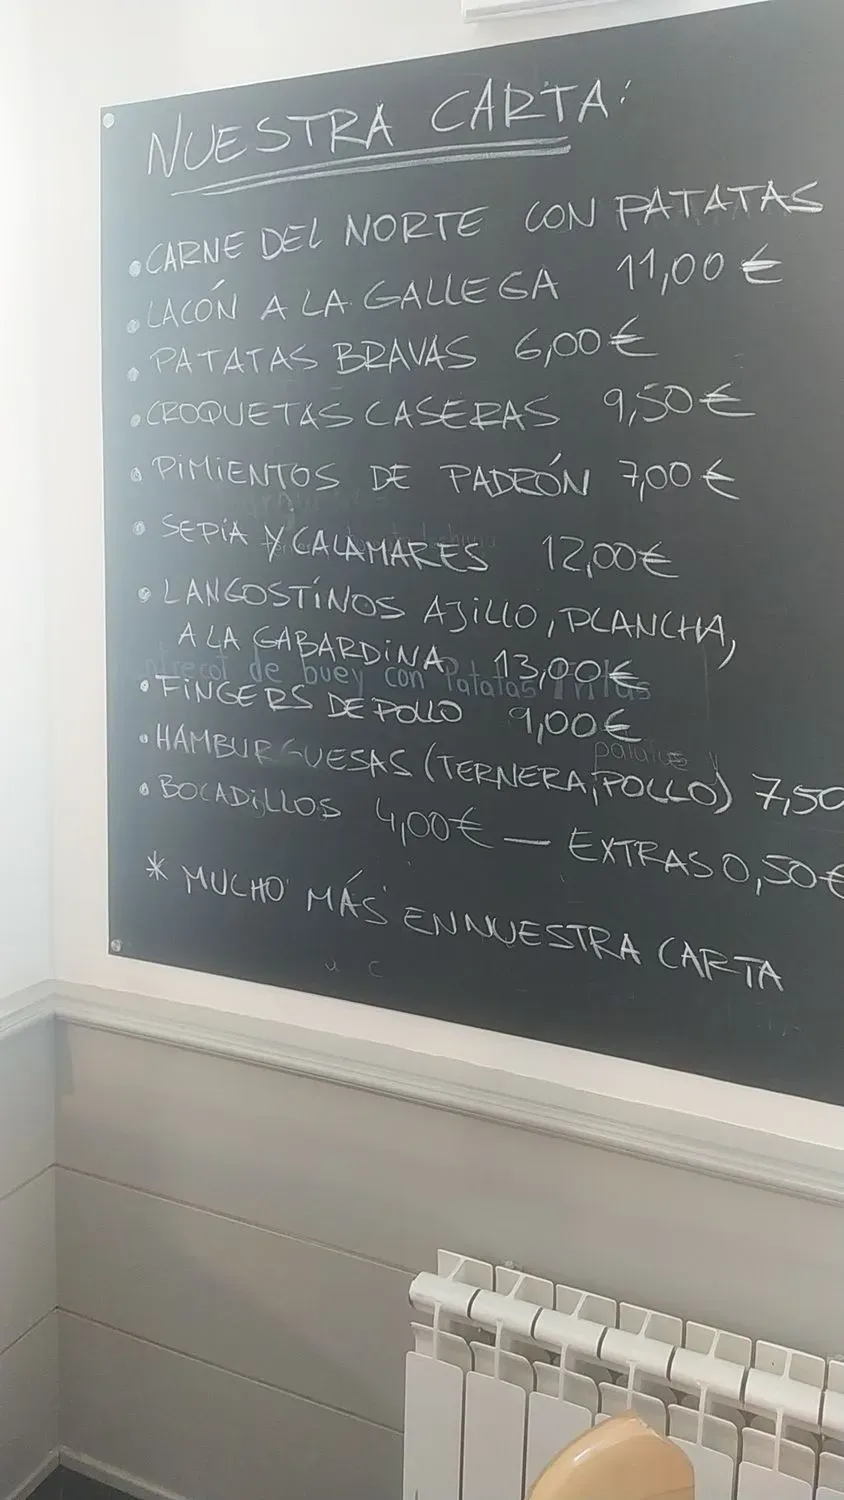 NUESTRA CARTA:
• CARNE DEL NORTE CON PATATAS
• LACÓN A LA GALLEGA 11,00 €
• PATATAS BRAVAS 6,00 €
• CROQUETAS CASERAS 9,50 €
• PIMIENTOS DE PADRÓN 7,00 €
• SEPIA Y CALAMARES 12,00 €
• LANGOSTÍNOS AJILLO, PLANCHA,
A LA GABARDINA 13,00 €
de buey con Patatas
• FINGERS DE POLLO 9,00 €
• HAMBURGUESAS (TERNERA, POLLO) 7,50
• BOCADILLOS 4,00€ — EXTRAS 0,50€
* MUCHO MÁS EN NUESTRA CARTA